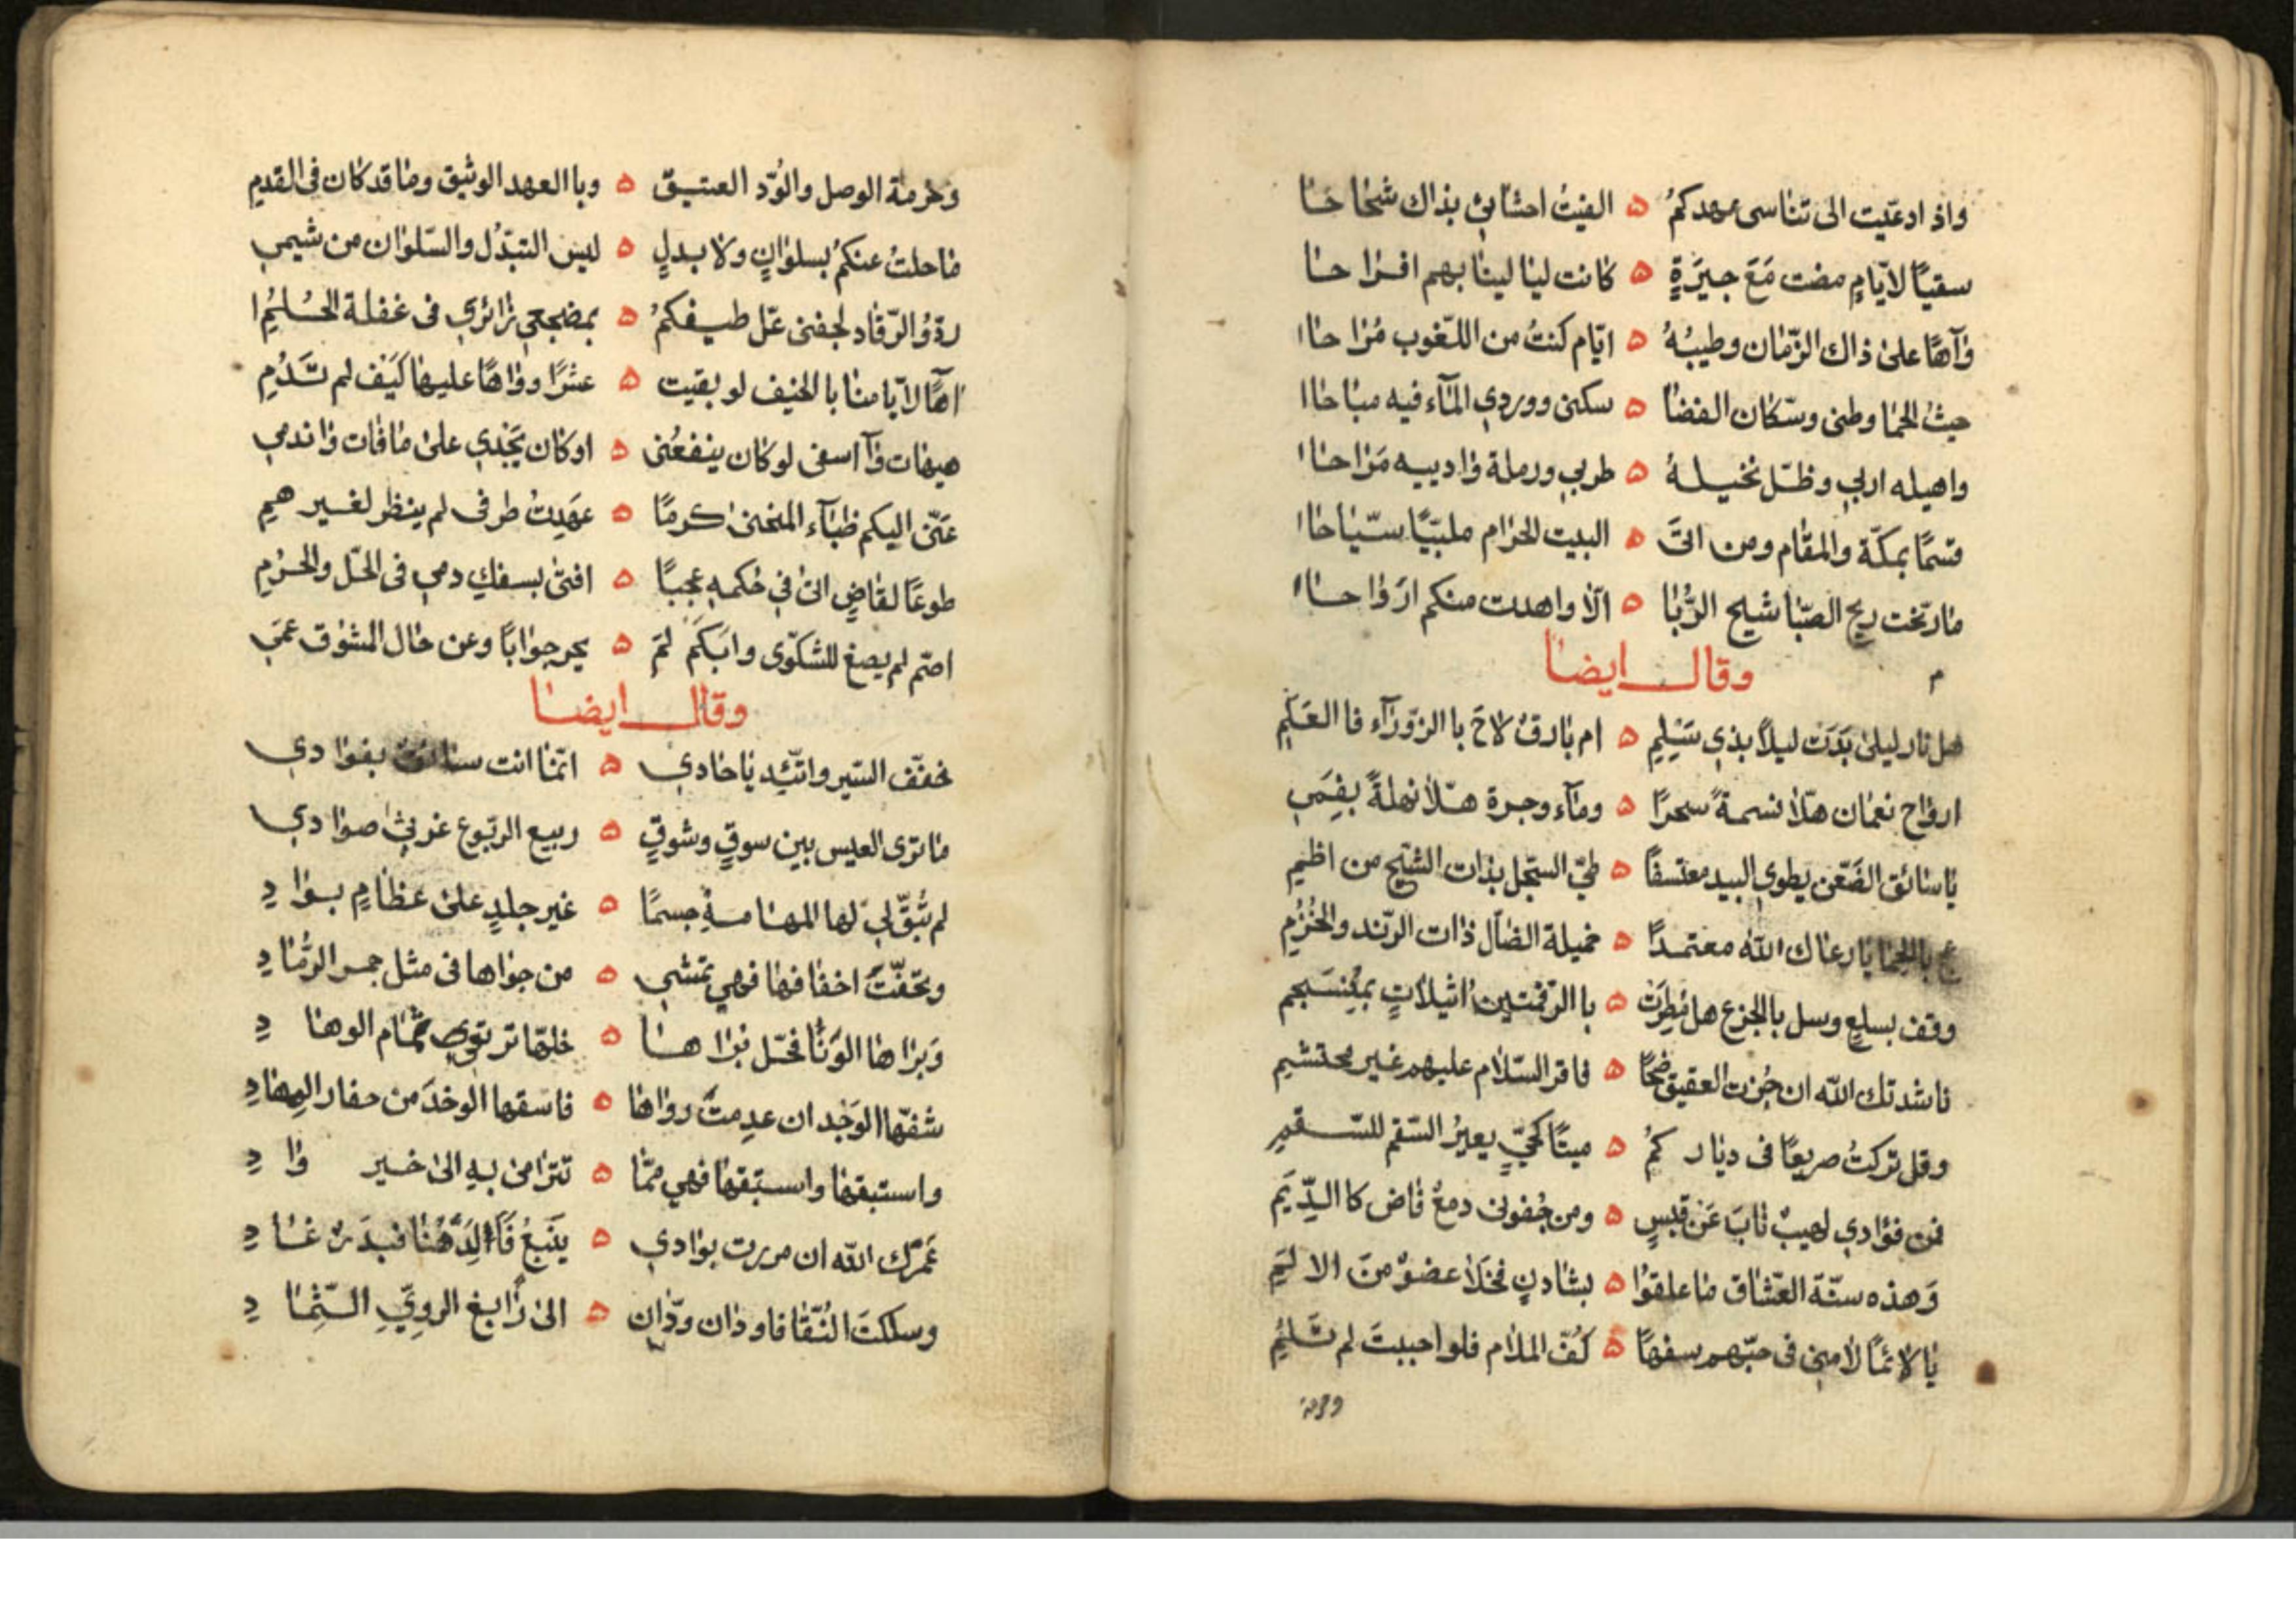 واذ ادعيت الى تناسى عهدكمُ ه الفيتُ احشائى بذاك شحاحا
سقيًا لايّامٍ مضت مَعَ جيرَةٍ ه كانت ليا لينا بهم افراحا
وآهًا على ذاك الزّمان وطيبُهُ ه ايّام كنتُ من اللّغوب مُراحاا
حيثُ الحما وطنى وسكّان الفضا ه سكنى ووردي المآء فيه مباحاا
واهيله اربي وظلّ نخيلهُ ه طربي ورملة وادييه مَراحاا
قسمًا بمكّة والمقام ومن اتىَ ه البيت الحرام ملبّيًا سيّاحاا
مارنّحت ريح الصّبا شيح الرُّبا ه الّا واهدت منكم ارَواحاا
م
وقال ايضا
هل نار ليلى بَدَت ليلاً بذي سَلِمِ ه ام بارقٌ لاحَ با الزّورآء فا العَلَمِ
ارواح نعمان هلّا نسمةً سحرًا ه ومآء وجرة هلّا نهلةً بفَمِي
يا سائق الضَعّن يطوي البيد معتسفًا ه طيّ السّجل بذات الشّيح من اظمِ
عج بالحما يا رعاك الله معتمدًا ه خميلة الضال ذات الرّند والخُزُمِ
وقف بسلعٍ وسل بالجزع هل مُطِرَت ه با الرّقمتين اثيلاتٍ بمُنسَجم
ناشدتك الله ان جُزت العقيق ضحًا ه فاقر السّلام عليهم غير محتشمِ
وقل تركتُ صريعًا فى ديار كمُ ه ميتًا كحيٍّ يعيرُ السّقم للسّقمِ
فمن فؤادي لهيبٌ نابَ عَن قبسٍ ه ومن جُفونى دمعٌ فاض كا الدِّيَمِ
وَهذه سنّة العّشاق ما علقوُا ه بشادنٍ فخلا عضوٌ منَ الا لمَِ
يا لائمًا لامنى فى حبّهم سفهًا ه كُفّ الملام فلو احببتَ لم تَلُمِ
وحرمة
وحرمة الوصل والوُدّ العتيق ه وبا العهد الوثيق وما قد كان فى القدمِ
ما حلتُ عنكمُ بسلوانٍ ولا بدلٍ ه ليس التبدّل والسّلوان من شيمي
ردّوُ الرّقاد لجفنى عّل طيفكمُ ه بمضجعي زائري فى غفلة الحُلُمِ
اهًا لايّامنا با الخيف لو بقيت ه عشرًا وواهًا عليها كيَف لم تَدُمِ
هيهات وآ اسفى لو كان ينفعُنى ه اوكان يجَدي على ما فات واندمي
عَنّى اليكم ظبآء المنحنى كرمًا ه عَهِدتُ طرفى لم ينظر لغير همِ
طوعًا لقاضٍ اتى في حُكمهِ عجبًا ه افتى بسفكِ دمي فى الحّل والحرُمِ
اصّم لم يصغ للشكّوى وابَكَم لمَ ه يحر جوابًا وعن حال المشوق عَمىَ
وقال ايضا
خفّف السّير واتّئد يا حادي ه انّما انت سائق بفوا دي
ما ترى العيس بين سوقٍ وشوقٍ ه ربيع الربّوع غرثى صوا دي
لم تُبَقّ لها المهامهِ جسمًا ه غير جلدٍ على عظامٍ بوا دِ
وتحفّتَ اخفافها فهي تمشي ه من جواها فى مثل جمر الرّما دِ
وَبراها الوَنا فحّل براها ه خلّها ترتوي ثمام الوها دِ
شفّها الوَجد ان عدِمتَ رواها ه فاسقها الوخدَ من جفار المِهادِ
واستبقها واستبقها فهي ممّا ه تترامى بهِ الى خير وا دِ
عَمرَك الله ان مررت بوادي ه يَنبعُ فَالدَّهنا فبدَرٌ غا دِ
وسلكتَ النّقا فاودان ودّان ه الى رابغ الروِيِّ الثّما دِ